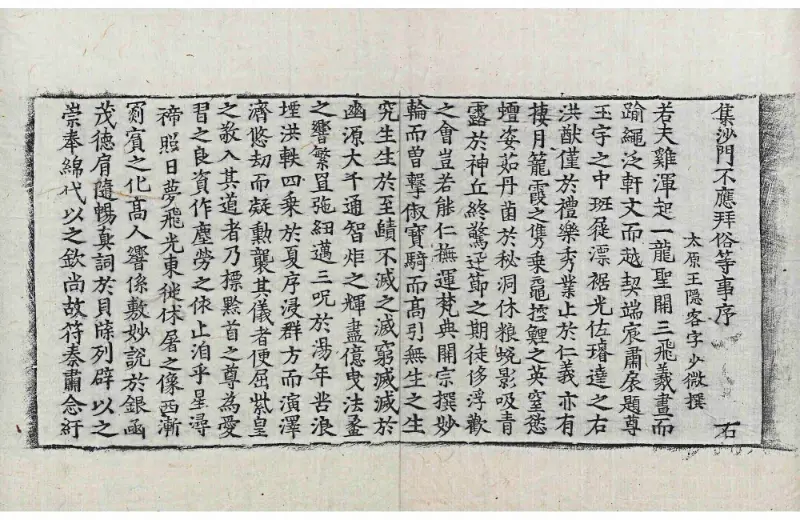 集沙門不應拜俗等事序 右
太原王隱客字少微撰
若夫雞渾起一龍聖開三飛羲畫而
踰繩泛軒文而越契端宸肅扆題尊
玉字之中班 漂裾光佐璿逵之右
洪猷僅於禮樂秀業止於仁義亦有
棲月籠霞之雋乘黿控鯉之英窒慾
蟺姿茹丹菌於秘洞休粮蛻影吸青
露於神丘終驚 之期徒侈浮歡
之會豈若能仁撫運梵典開宗撰妙
輪而曾擊俶寶騎而高引無生之生
究生生於至賾不滅之滅窮滅滅於
幽源大千通智炬之輝盡億曳法
之響繁罝弛紐邁三呪於湯年 浪
堙洪軼四乘於夏序浸群方而演澤
濟悠劫而凝勲襲其儀者便屈紫皇
之敬入其道者乃標黔首之尊為愛
習之良資作塵勞之依止洎乎星
照日夢飛光東徙 屠之像西漸
罽賓之化高人響係敷妙説於銀函
茂德肩隨暢真詞於貝牒列辟以之
崇奉綿代以之欽尚故符秦肅念紆